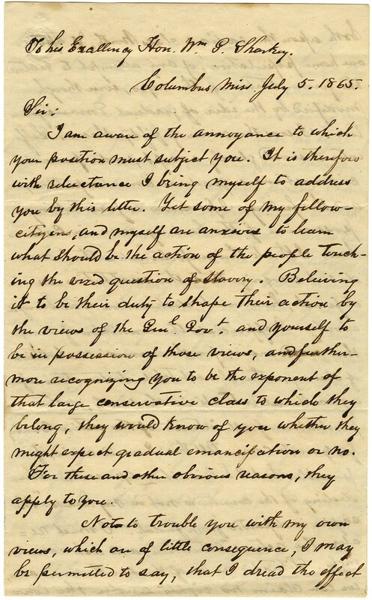 To his Excellency Hon. Wm P. Sharkey.
Columbus Miss. July 5. 1865.
Sir:
I am aware of the annoyance to which
your position must subject you. It is therefore
with reluctance I bring myself to address
you by this letter. Yet some of my fellow-
citizens, and myself are anxious to learn
what should be the action of the people touch-
ing the vexed question of slavery. Believing
it to be their duty to shape their action by
the views of the Genl. Govt. and yourself to
be in possession of those views, and further-
more recognizing you to be the exponent of
that large conservative class to which they
belong, they would know of you whether they
might expect gradual emancipation or no.
For these and other obvious reasons, they
apply to you.
Not to trouble you with my own
views, which are of little consequence, I may
be permitted to say, that I dread the effect